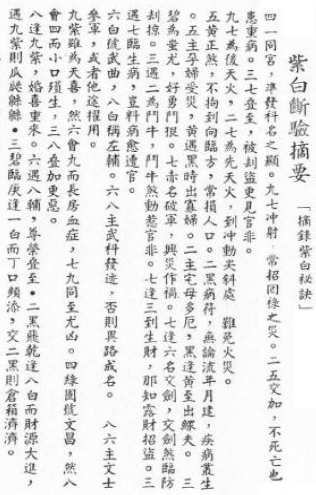 紫白斷驗摘要
「摘錄紫白秘訣」
四一同宮，準發科名之顯。九七冲射，常招回祿之災。二五交加，不死亡也
患重病。三七叠至，被刦盜更見官非。
九七為後天火，二七為先天火，到冲動尖斜處，難免火災。
五黃正煞，不拘到向臨方，常損人口。二黑病符，無論流年月建，疾病叢生
。五主孕婦受災，黃遇黑時出寡婦。二主宅母多厄，黑逢黃至出鰥夫。三
碧為蚩尤，好勇鬥狠。七赤名破軍，興災作禍。七逢六名交劍，交劍煞臨防
刦掠。三遇二為鬥牛，鬥牛煞動惹官非。七逢三到生財，那知露財招盜。三
遇七臨生病，豈料病愈遭官。
六白號武曲，八白稱左輔。六八主武科發達，否則異路成名。 八六主文士
參軍，或者他途擢用。
九紫雖為天喜，然六會九而長房血症，七九同至尤凶。四綠固號文昌，然八
會四而小口殞生，三八叠加更惡。
八逢九紫，婚喜重來。六遇八輔，尊榮叠至•二黑飛乾逢八白而財源大進，
遇九紫則瓜瓞緜緜•三碧臨庚逢一白而丁口頻添，交二黑則倉箱濟濟。